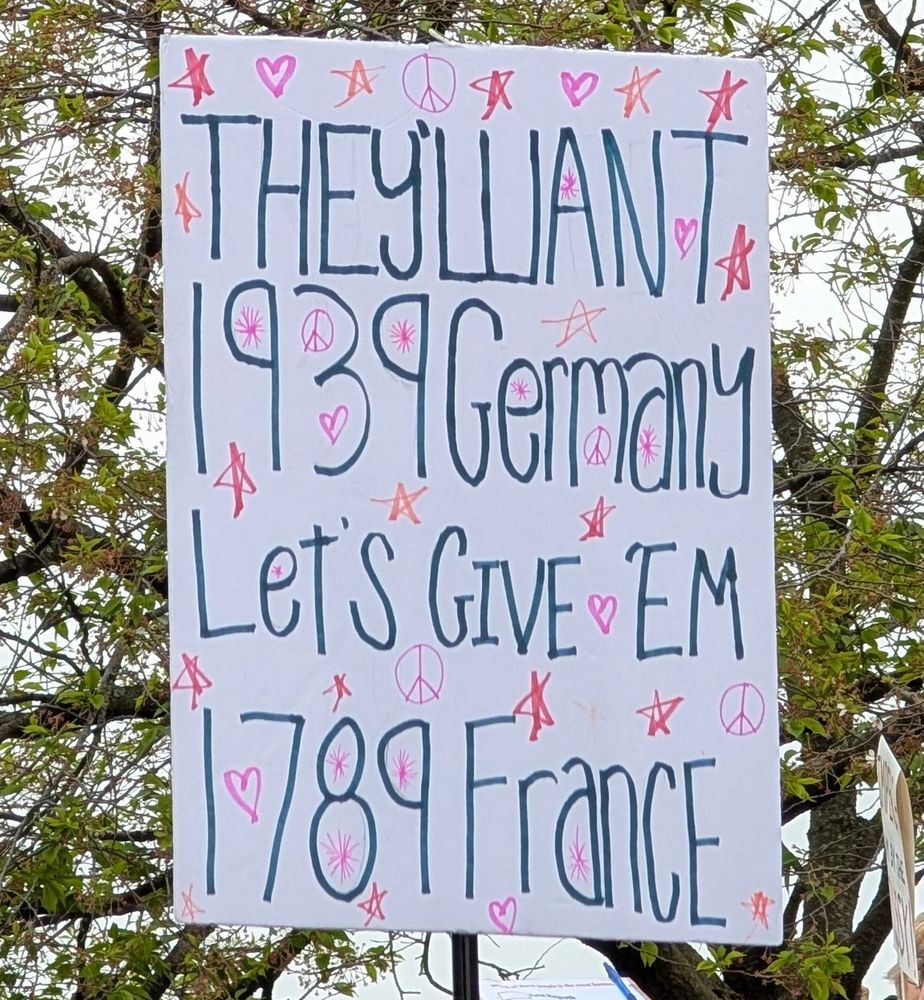 THEY'WANT
1939 Germany
Let's GIVE 'EM
1789 FrancE